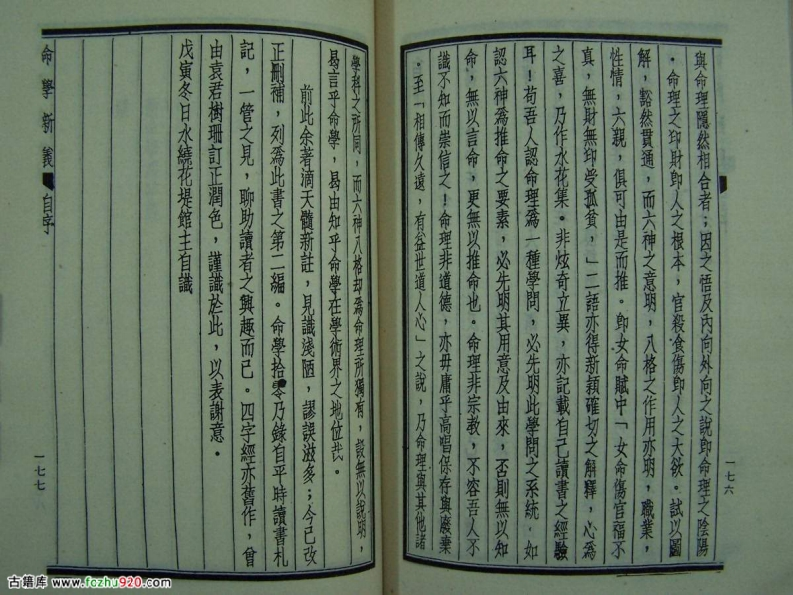 與命理隱然相合者；因之悟及內向外向之說卽命理之陰陽
．命理之印財卽人之根本，官殺食傷卽人之大欲。試以圖
解，豁然貫通，而六神之意明，八格之作用亦明，職業，
性情，六親，俱可由是而推。卽女命賦中「女命傷官福不
真，無財無印受孤貧，」二語亦得新穎確切之解釋，心爲
之喜，乃作水花集。非炫奇立異，亦記載自己讀書之經驗
耳！荀吾人認命理爲一種學問，必先明此學問之系統．如
認六神爲推命之要素，必先明其用意及由來，否則無以知
命，無以言命，更無以推命也。命理非宗教，不容吾人不
識不知而崇信之！命理非道德，亦毋庸乎高唱保存與廢棄
．至「相傳久遠，有益世道人心」之說，乃命理與其他諸
一七六
學科之所同，而六神八格却爲命理所獨有，設無以說明，
曷言乎命學，曷由知乎命學在學術界之地位哉。
前此余著滴天髓新註，見識淺陋，謬誤滋多；今已改
正刪補，列爲此書之第二編。命學拾零乃錄自平時讀書札
記，一管之見，聊助讀者之興趣而已。四字經亦舊作，曾
由袁君樹珊訂正潤色，謹識於此，以表謝意．
戊寅冬日水繞花堤館主自識
命學新義
自序
一七七
古籍库 www.fozhu920.com